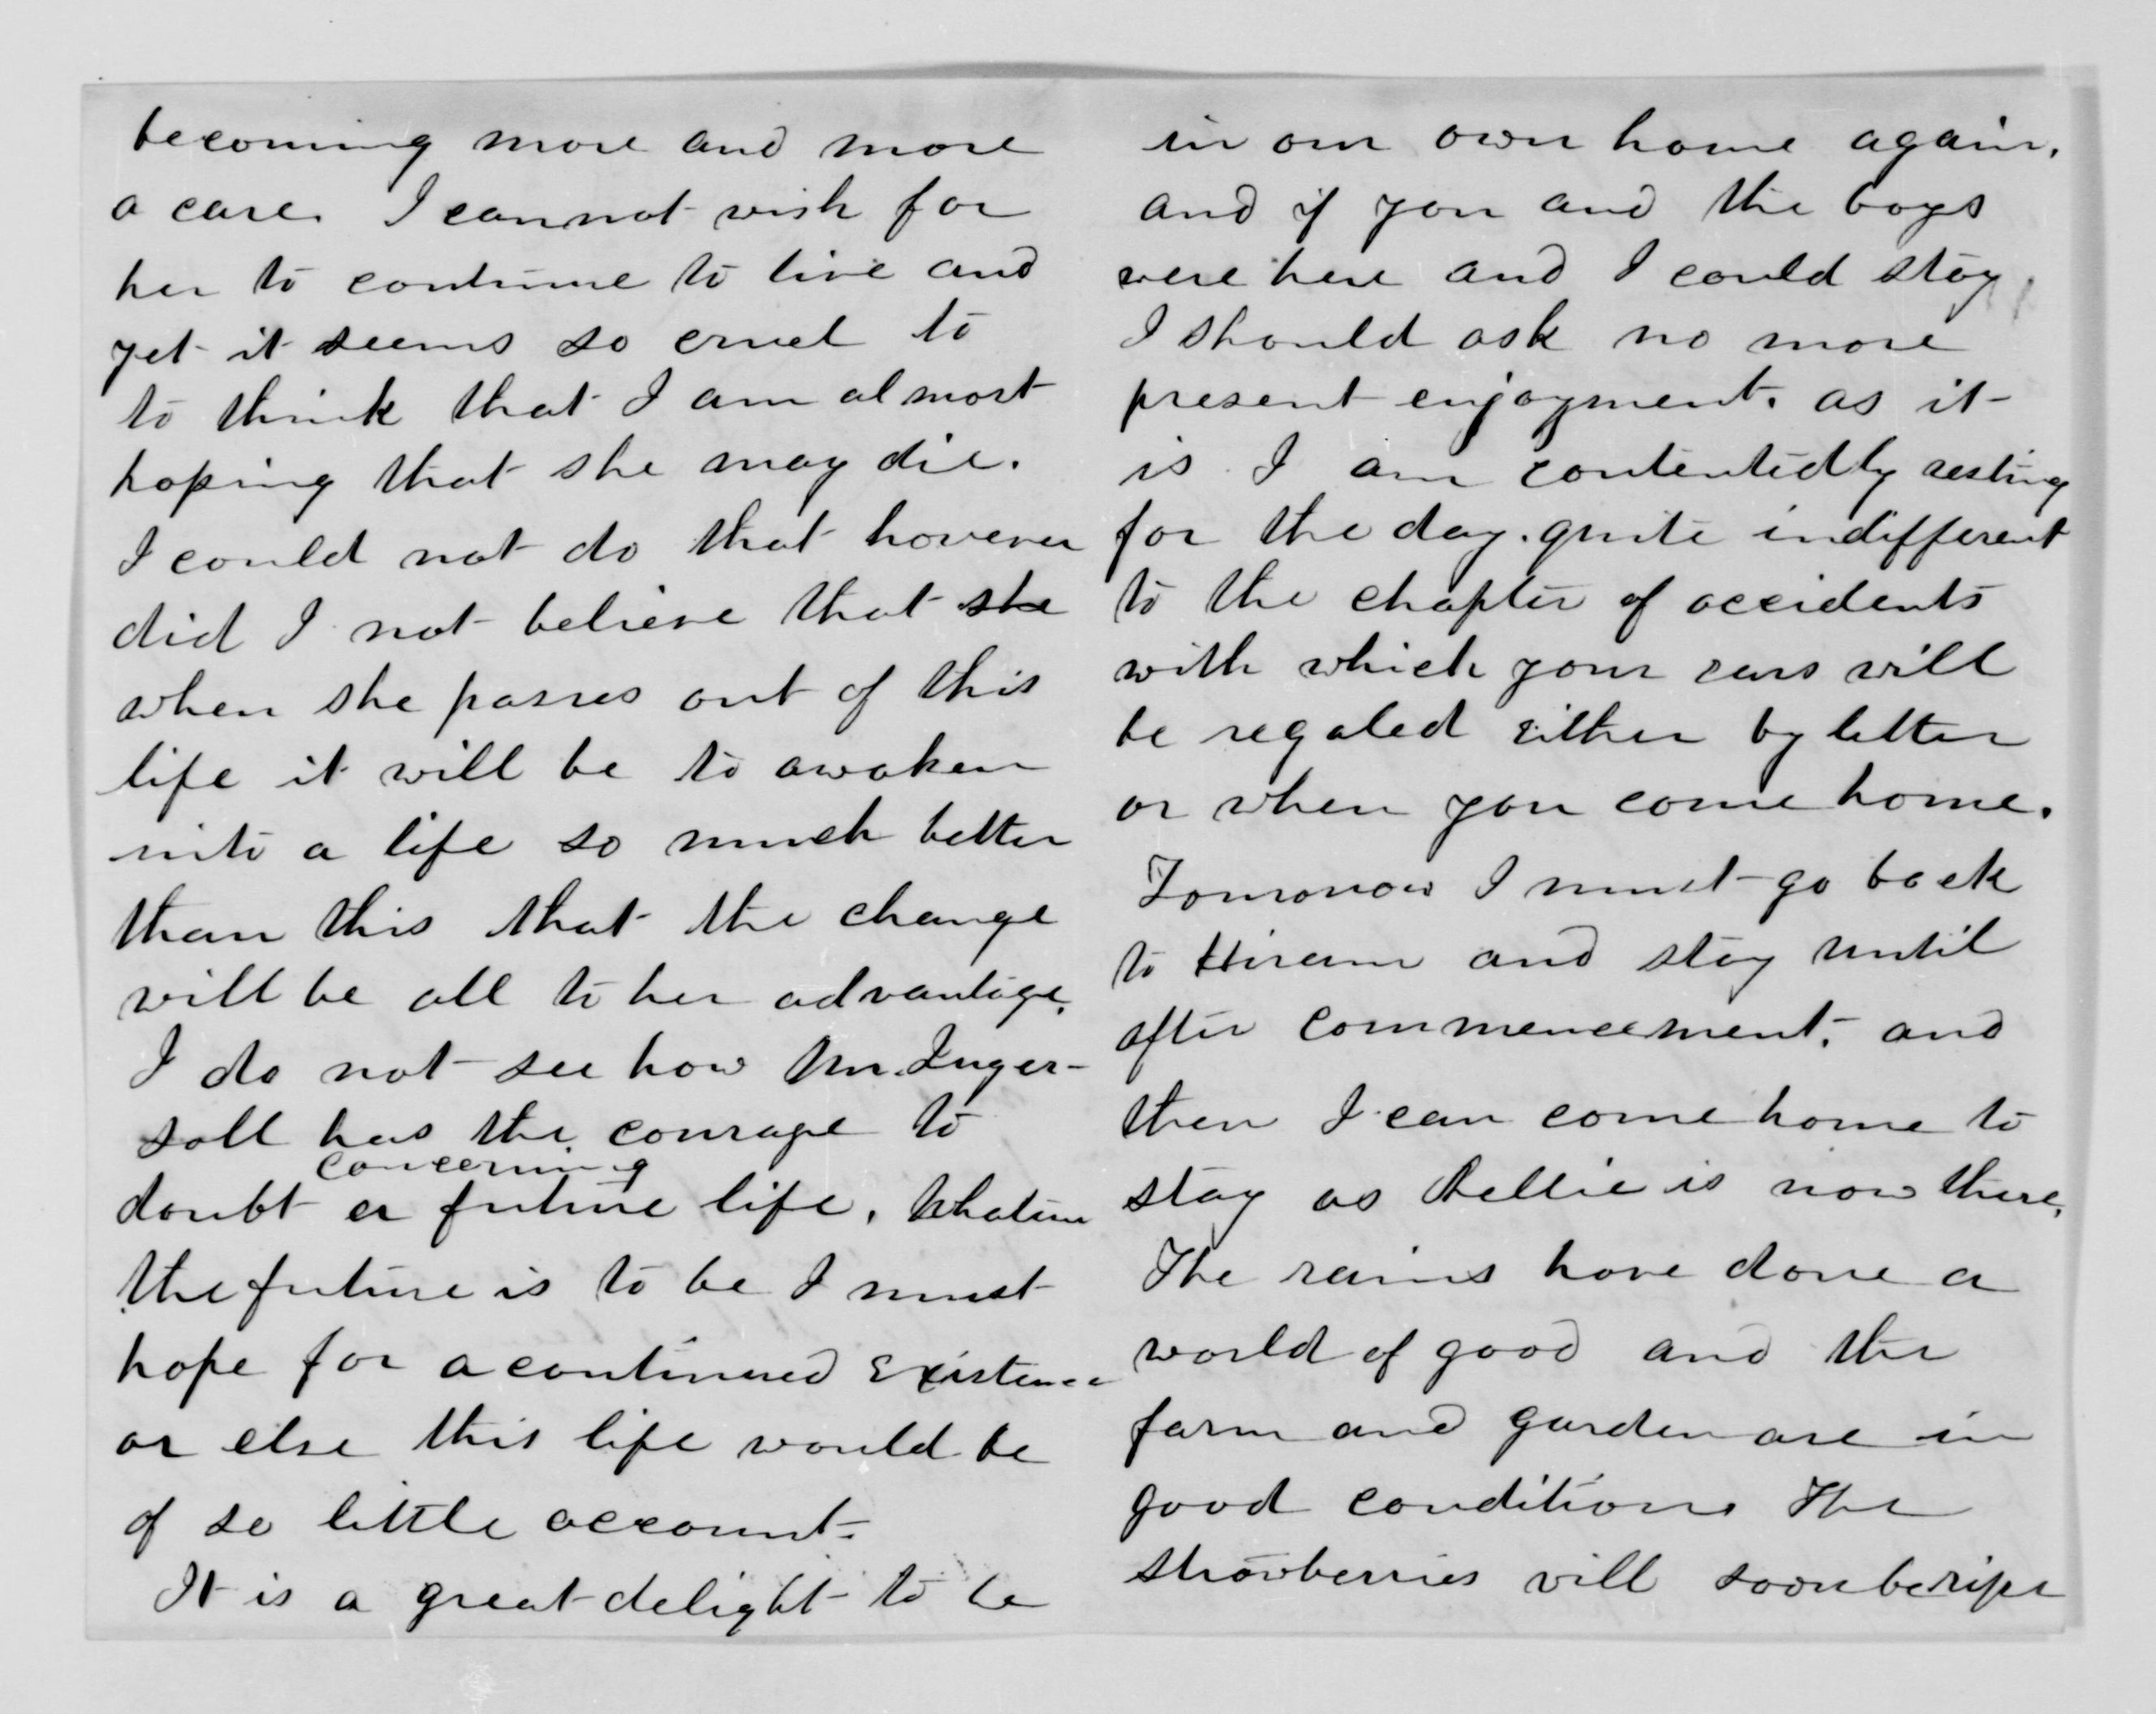 becoming more and more
a care. I cannot wish for
her to continue to live and
yet it seems so cruel to
to think that I am almost
hoping that she may die.
I could not do that however
did I not believe that she
when she passes out of this
life it will be to awaken
into a life so much better
than this that the change
will be all to her advantage.
I do not see how Mr. Inger-
soll has the courage to
concerning
doubt a future life. Whatever
the future is to be I must
hope for a continued existence
or else this life would be
of so little account.
It is a great delight to be
in our own home again.
and if you and the boys
were here and I could stay
I should ask no more
present enjoyment. as it
is I am contentedly resting
for the day. quite indifferent
to the chapter of accidents
with which your ears will
be regaled either by letter
or when you come home.
Tomorrow I must go back
to Hiram and stay until
after commencement. and
then I can come home to
stay as Nellie is now there.
The rains have done a
world of good and the
farm and garden are in
good conditions The
strawberries will soon be ripe